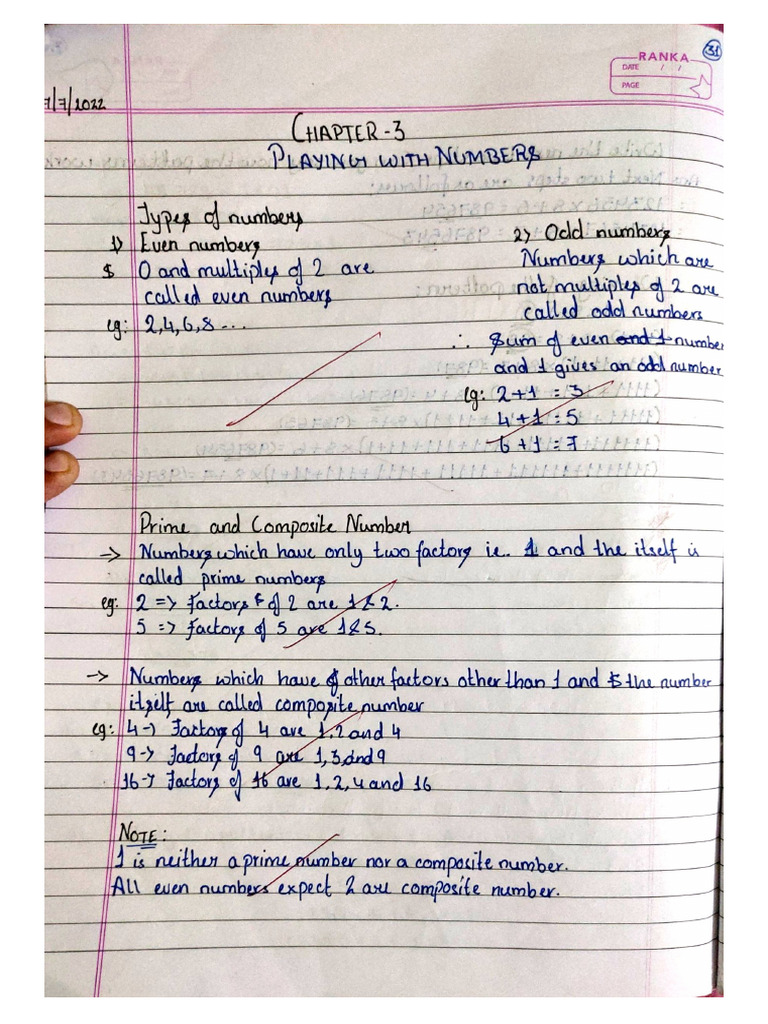 31
RANKA
DATE / /
PAGE
7/7/2022
CHAPTER-3
PLAYING WITH NUMBERS
Types of numbers
1) Even numbers
0 and multiples of 2 are
called even numbers
eg: 2,4,6,8...
2) Odd numbers
Numbers which are
not multiples of 2 are
called odd numbers
∴ Sum of even and 1 number
and 1 gives an odd number
eg: 2+1 = 3
4+1 = 5
6+1 = 7
Prime and Composite Number
-> Numbers which have only two factors ie. 1 and the itself is
called prime numbers
eg: 2 => Factors of 2 are 1 & 2.
5 => Factors of 5 are 1 & 5.
-> Numbers which have other factors other than 1 and the number
itself are called composite number
eg: 4-> Factors of 4 are 1,2 and 4
9-> Factors of 9 are 1,3,and 9
16-> Factors of 16 are 1,2,4 and 16
NOTE:
1 is neither a prime number nor a composite number.
All even numbers expect 2 are composite number.